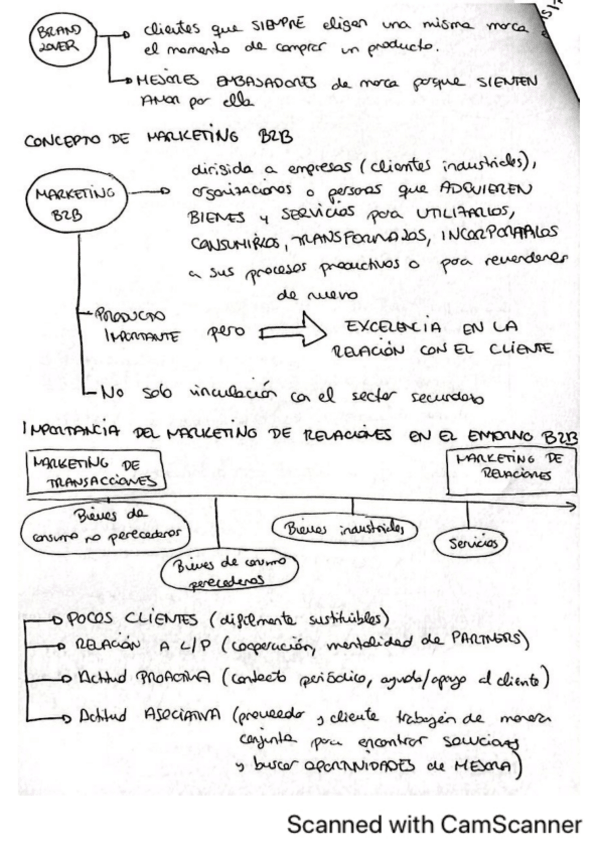 BRAND
LOVER
clientes que SIEMPRE eligen una misma marca
el momento de comprar un producto.
MEJORES EMBAJADORES de marca porque SIENTEN
AMOR por ella
CONCEPTO DE MARKETING B2B
MARKETING
B2B
dirigida a empresas (clientes industriales),
organizaciones o personas que ADQUIEREN
BIENES y SERVICIOS para UTILIZARLOS,
CONSUMIRLOS, TRANSFORMARLOS, INCORPORARLOS
a sus procesos productivos o para revenderlos
de nuevo
PRODUCTO
IMPORTANTE pero
EXCELENCIA EN LA
RELACIÓN CON EL CLIENTE
No solo vinculación con el sector secundario
IMPORTANCIA DEL MARKETING DE RELACIONES EN EL ENTORNO B2B
MARKETING DE
TRANSACCIONES
MARKETING DE
RELACIONES
Bienes de
consumo no perecederos
Bienes de consumo
perecederos
Bienes industriales
Servicios
POCOS CLIENTES (difícilmente sustituibles)
RELACIÓN A L/P (cooperación, mentalidad de PARTNERS)
Actitud PROACTIVA (contacto periódico, ayuda/apoyo al cliente)
Actitud ASOCIATIVA (proveedor y cliente trabajan de manera
conjunta para encontrar soluciones
y buscar OPORTUNIDADES de MEJORA)
Scanned with CamScanner